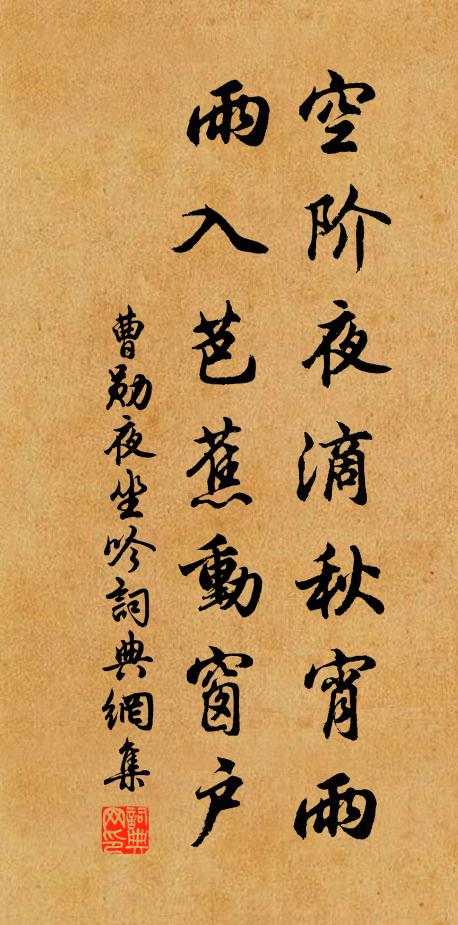 空阶夜滴秋宵雨
雨入芭蕉動窗户
曹勋夜坐吟詞典網集
詞典网印